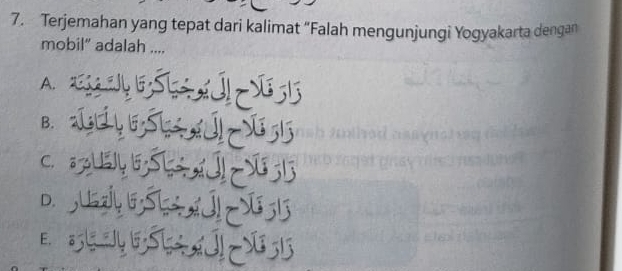 7. Terjemahan yang tepat dari kalimat "Falah mengunjungi Yogyakarta dengan
mobil" adalah ....
A. زَارَ فَلَاح إِلَى يُوجْيَاكَرْتَا بِالسَّفِيْنَة
B. زَارَ فَلَاح إِلَى يُوجْيَاكَرْتَا بِالحَافِلَة
C. زَارَ فَلَاح إِلَى يُوجْيَاكَرْتَا بِالطَّائِرَة
D. زَارَ فَلَاح إِلَى يُوجْيَاكَرْتَا بِالقِطَار
E. زَارَ فَلَاح إِلَى يُوجْيَاكَرْتَا بِالسَّيَّارَة